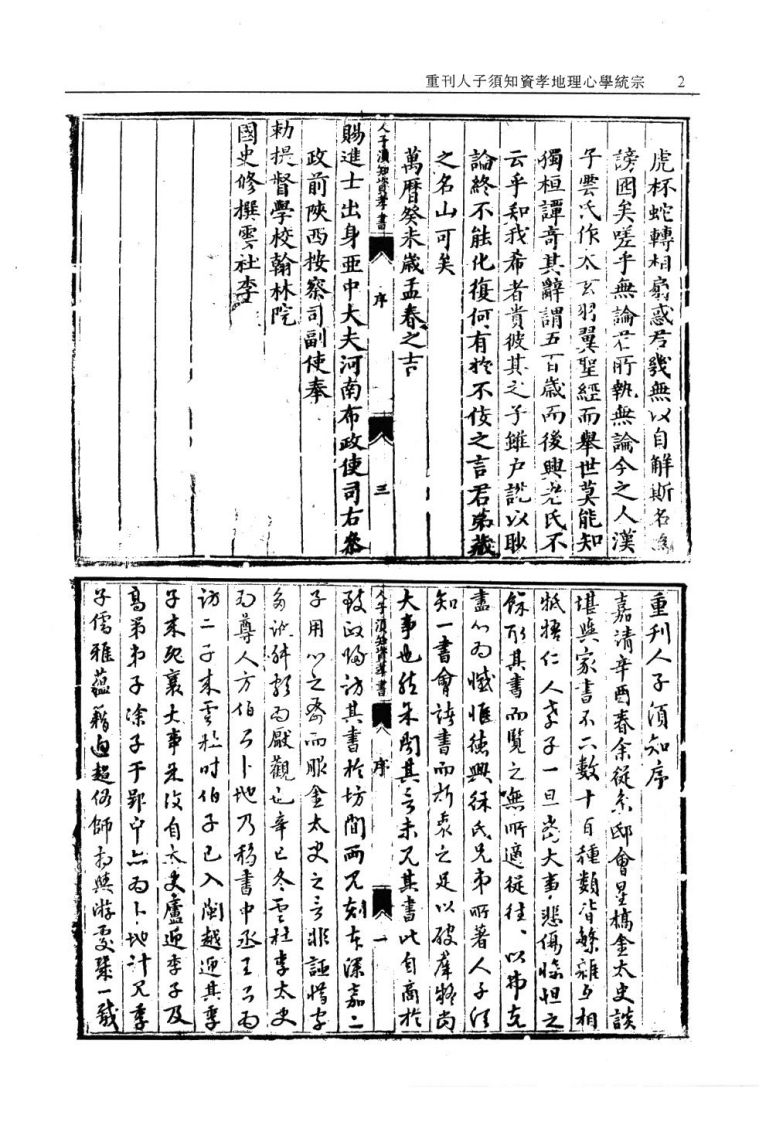 重刊人子須知資孝地理心學統宗 2
虎杯蛇轉相扇惑君幾無以自解斯名為
謗囮矣嗟乎無論君所執無論今之人漢
子雲氏作太玄羽翼聖經而舉世莫能知
獨桓譚奇其辭謂五百歲而後興老氏不
云乎知我希者貴彼其之子雖戶說以眇
論終不能化復何有於不佞之言君第藏
之名山可矣
萬曆癸未歲孟春之吉
人子須知資孝書 序 三
賜進士出身亞中大夫河南布政使司右叅
政前陝西按察司副使奉
勅提督學校翰林院
國史修撰雲社李
重刊人子須知序
嘉清辛酉春余從京邸會星橋金太史談
堪輿家書不六數十百種類皆繇雜互相
牴牾仁人孝子一旦當大事悲傷慘怛之
餘取其書而覽之無所適從往以弗克
盡心為憾惟德興徐氏兄弟所著人子須
知一書會諸書而折衷之足以破羣疑尚
大事也然未聞其言未見其書比自高於
人子須知資孝書 序 一
致政歸訪其書於坊間而見刻本深嘉二
子用心之喬而服金太史之言非誣惜字
多訛舛頗為厭觀也辛巳冬雲社李太史
為尊人方伯公卜地乃移書中丞王公為
訪二子來雲社時伯子已入閩越迎其季
子來兆襄大事吳後自太史廬迎季子及
高弟弟子涂子于郢中亦為卜地計見季
子儒雅蘊藉迥超俗師相與游處琹一載